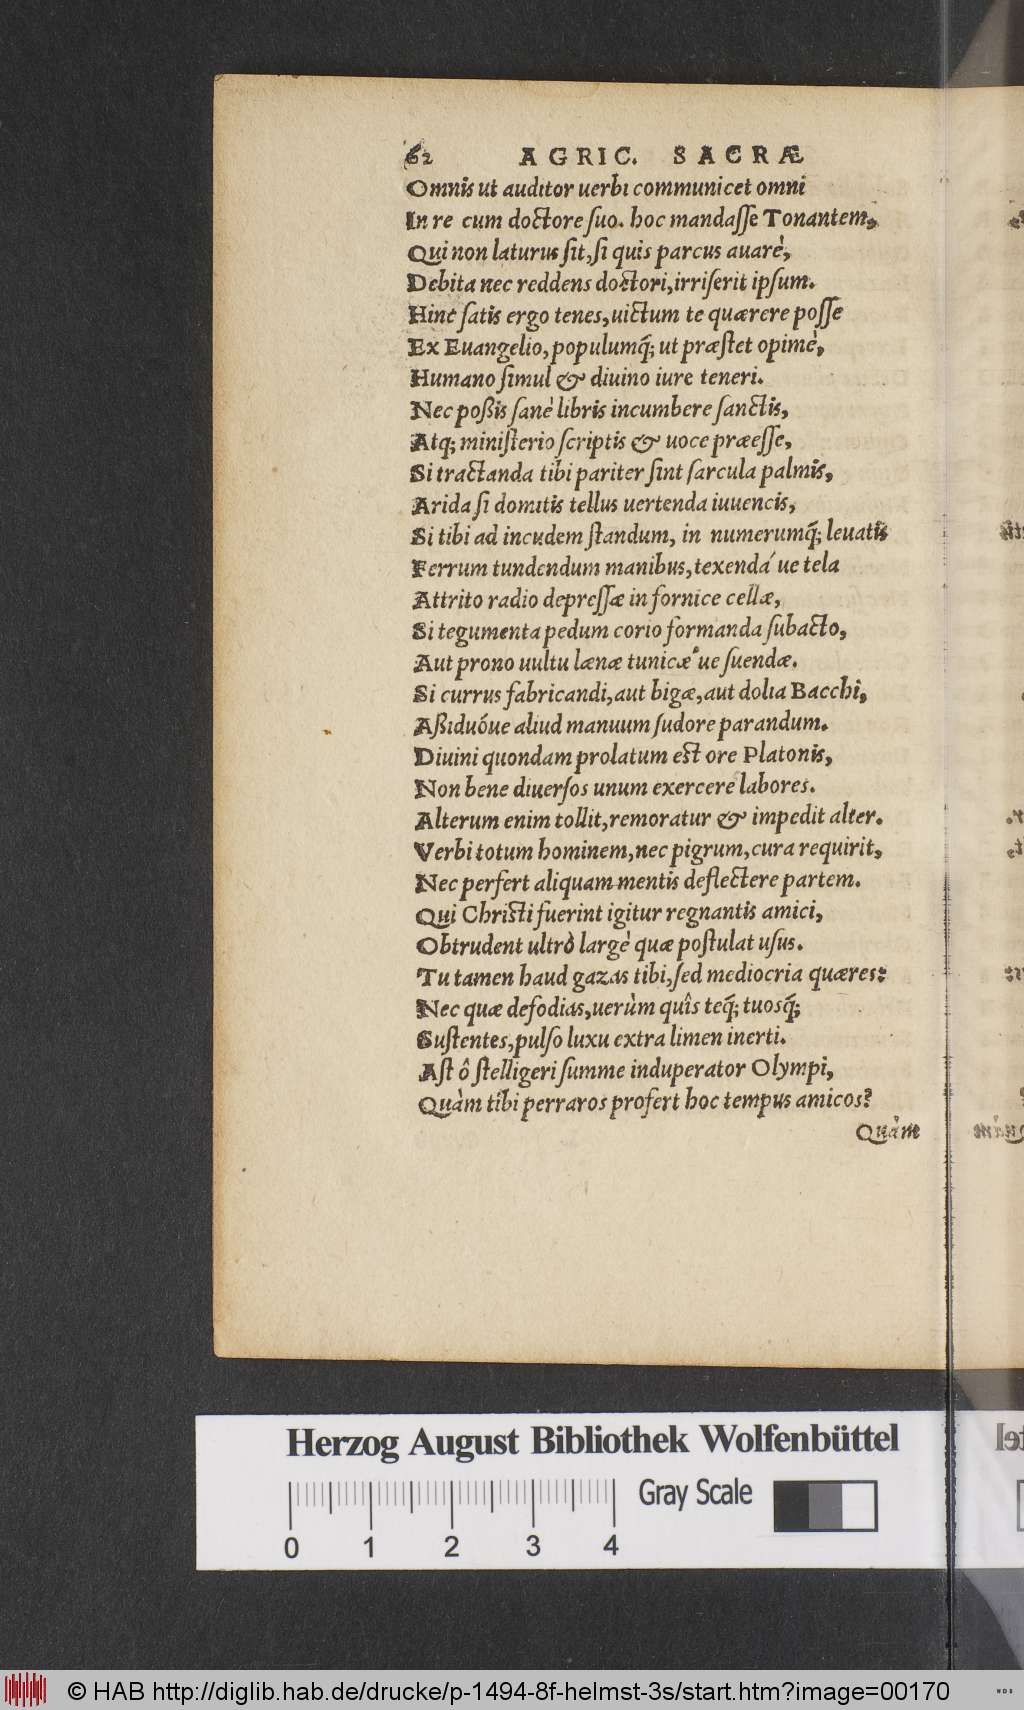 62 AGRIC. SACRÆ
Omnis ut auditor uerbi communicet omni
In re cum doctore ſuo. hoc mandaſſe Tonantem,
Qui non laturus ſit, ſi quis parcus auarè,
Debita nec reddens doctori, irriſerit ipſum.
Hinc ſatis ergo tenes, uictum te quærere poſſe
Ex Euangelio, populumq́; ut præſtet opimè,
Humano ſimul & diuino iure teneri.
Nec poßis ſanè libris incumbere ſanctis,
Atq; miniſterio ſcriptis & uoce præeſſe,
Si tractanda tibi pariter ſint ſarcula palmis,
Arida ſi domitis tellus uertenda iuuencis,
Si tibi ad incudem ſtandum, in numerumq́; leuatis
Ferrum tundendum manibus, texendá ue tela
Attrito radio depreſſæ in fornice cellæ,
Si tegumenta pedum corio formanda ſubacto,
Aut prono uultu lænæ tunicæ´ue ſuendæ.
Si currus fabricandi, aut bigæ, aut dolia Bacchi,
Aßiduóue aliud manuum ſudore parandum.
Diuini quondam prolatum eſt ore Platonis,
Non bene diuerſos unum exercere labores.
Alterum enim tollit, remoratur & impedit alter.
Verbi totum hominem, nec pigrum, cura requirit,
Nec perfert aliquam mentis deflectere partem.
Qui Chriſti fuerint igitur regnantis amici,
Obtrudent ultrò largè quæ poſtulat uſus.
Tu tamen haud gazas tibi, ſed mediocria quæres:
Nec quæ defodias, uerùm quîs teq́; tuosq́;
Suſtentes, pulſo luxu extra limen inerti.
Aſt ô ſtelligeri ſumme induperator Olympi,
Quàm tibi perraros profert hoc tempus amicos?
Quàm
Herzog August Bibliothek Wolfenbüttel
Gray Scale
0 1 2 3 4
© HAB http://diglib.hab.de/drucke/p-1494-8f-helmst-3s/start.htm?image=00170